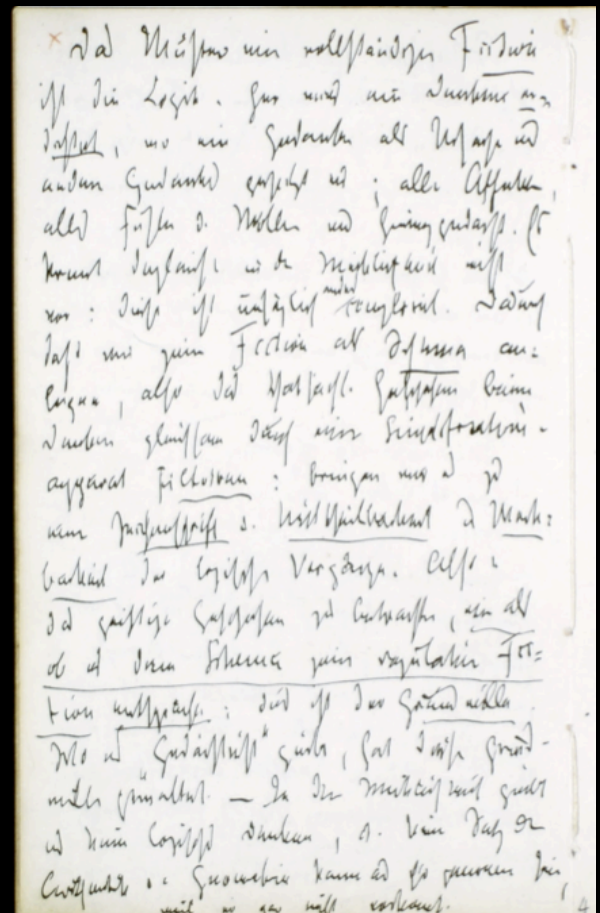 Das Muster einer vollständigen Fiction
ist die Logik. Hier wird ein Denken er-
dichtet, wo ein Gedanke als Ursache eines
andern Gedankens gesetzt wird; alle Affekte,
alles Fühlen u. Wollen wird hinweg gedacht. Es
kommt dergleichen in der Wirklichkeit nicht
vor: diese ist unsäglich anders complicirt. Dadurch
daß wir jene Fiction als Schema an-
legen, also das thatsächl. Geschehen beim
Denken gleichsam durch einen Simplifications-
apparat filtriren: bringen wir es zu
einer Zeichenschrift u. Mittheilbarkeit u Merk-
barkeit der logischen Vorgänge. Also:
das geistige Geschehen zu betrachten, wie als
ob es dem Schema jener regulativen Fic-
tion entspräche: dies ist der Grundwille.
Wo es „Gedächtniß“ giebt, hat dieser Grund-
wille gewaltet. — In der Wirklichkeit giebt
es kein logisches Denken, u. kein Satz der
Arithmetik u. Geometrie kann aus ihr genommen sein,
weil er gar nicht vorkommt.